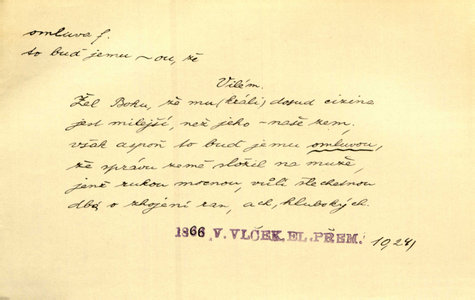 omluva f.
to buď jemu ~ou, že
Vilém.
Žel Bohu, že mu (králi) dosud cizina
jest milejší, než jeho – naše zem,
však aspoň to buď jemu omluvou,
že správu země složil na muže,
jenž rukou mocnou, vůlí šlechetnou
dbá o zhojení ran, ach, hlubokých.
1866 V. VLČEK. EL. PŘEM. 1928)